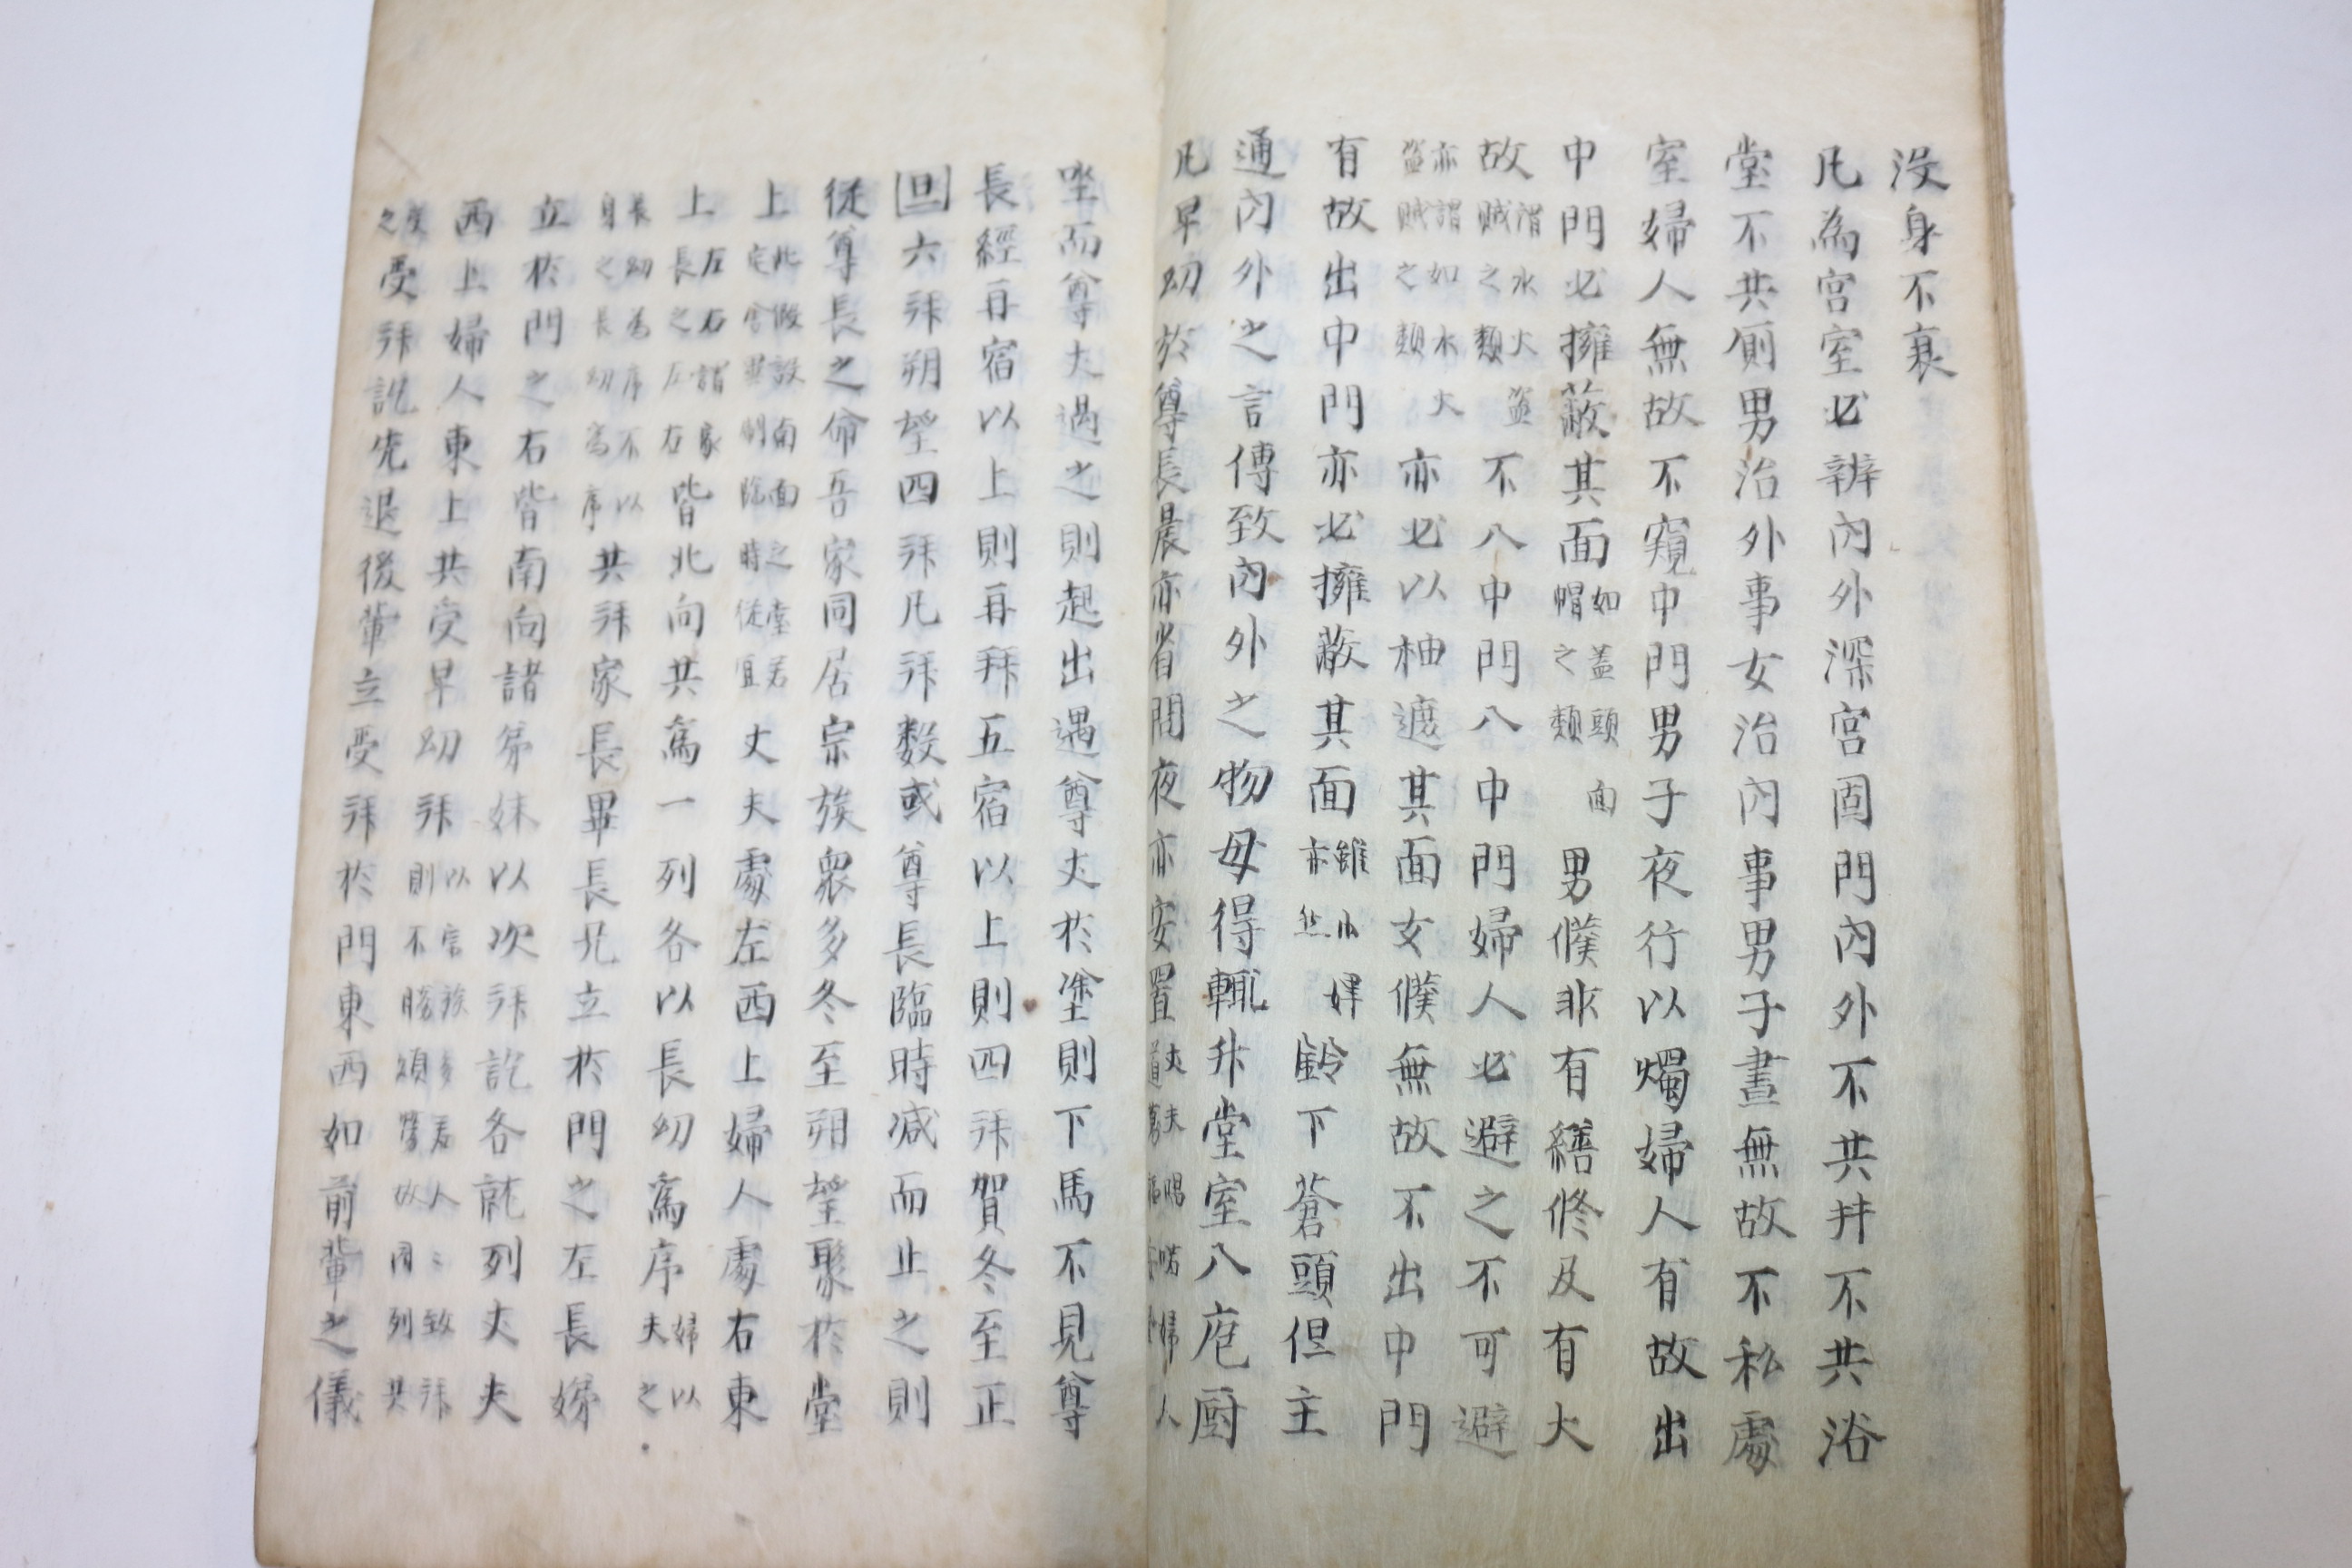 没身不衰
凡為宮室必辨內外深宮固門內外不共井不共浴
堂不共厠男治外事女治內事男子晝無故不私處
室婦人無故不窺中門男子夜行以燭婦人有故出
中門必擁蔽其面如盖頭面帽之類男僕非有繕修及有大
故謂水火盗賊之類不入中門入中門婦人必避之不可避
亦謂如水火盗賊之類亦必以袖遮其面女僕無故不出中門
有故出中門亦必擁蔽其面雖小婢亦然鈴下蒼頭但主
通內外之言傳致內外之物毋得輒升堂室入庖厨
凡卑幼於尊長晨亦省問夜亦安置丈夫唱喏婦人道萬福安置
坐而尊丈過之則起出遇尊丈於塗則下馬不見尊
長經再宿以上則再拜五宿以上則四拜賀冬至正
旦六拜朔望四拜凡拜数或尊長臨時减而止之則
從尊長之命吾家同居宗族衆多冬至朔望聚於堂
上此假設南面之堂若宅舍異制臨時從宜丈夫處左西上婦人處右東
上左右謂家長之左右皆北向共為一列各以長幼為序婦以夫之
長幼為序不以身之長幼為序共拜家長畢長兄立於門之左長姊
立於門之右皆南向諸弟妹以次拜訖各就列丈夫
西上婦人東上共受卑幼拜以宗族多若人〻致拜則不勝煩勞故同列共
受之受拜訖先退後輩立受拜於門東西如前輩之儀